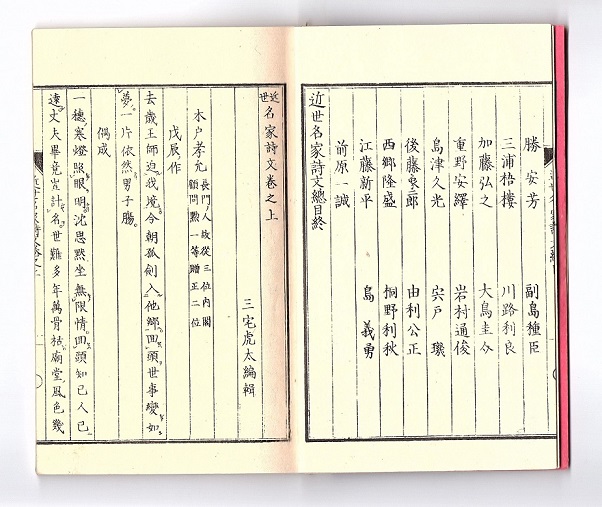 勝安芳　副島種臣
三浦梧樓　川路利良
加藤弘之　大鳥圭介
重野安繹　岩村通俊
島津久光　宍戸璣
後藤象二郎　由利公正
西郷隆盛　桐野利秋
江藤新平　島義勇
前原一誠
近世名家詩文總目終
近世名家詩文卷之上
三宅虎太編輯
木戸孝允　長門ノ人故從三位内閣
顧問勲一等贈正二位
戊辰作
去歳王師迫我境今朝孤劍入他鄉回頭世事變如
夢一片依然男子腸
偶成
一穗寒燈照眼明沈思默坐無限情回頭知己人已
遠丈夫畢竟豈計名世難多年萬骨枯廟堂風色幾